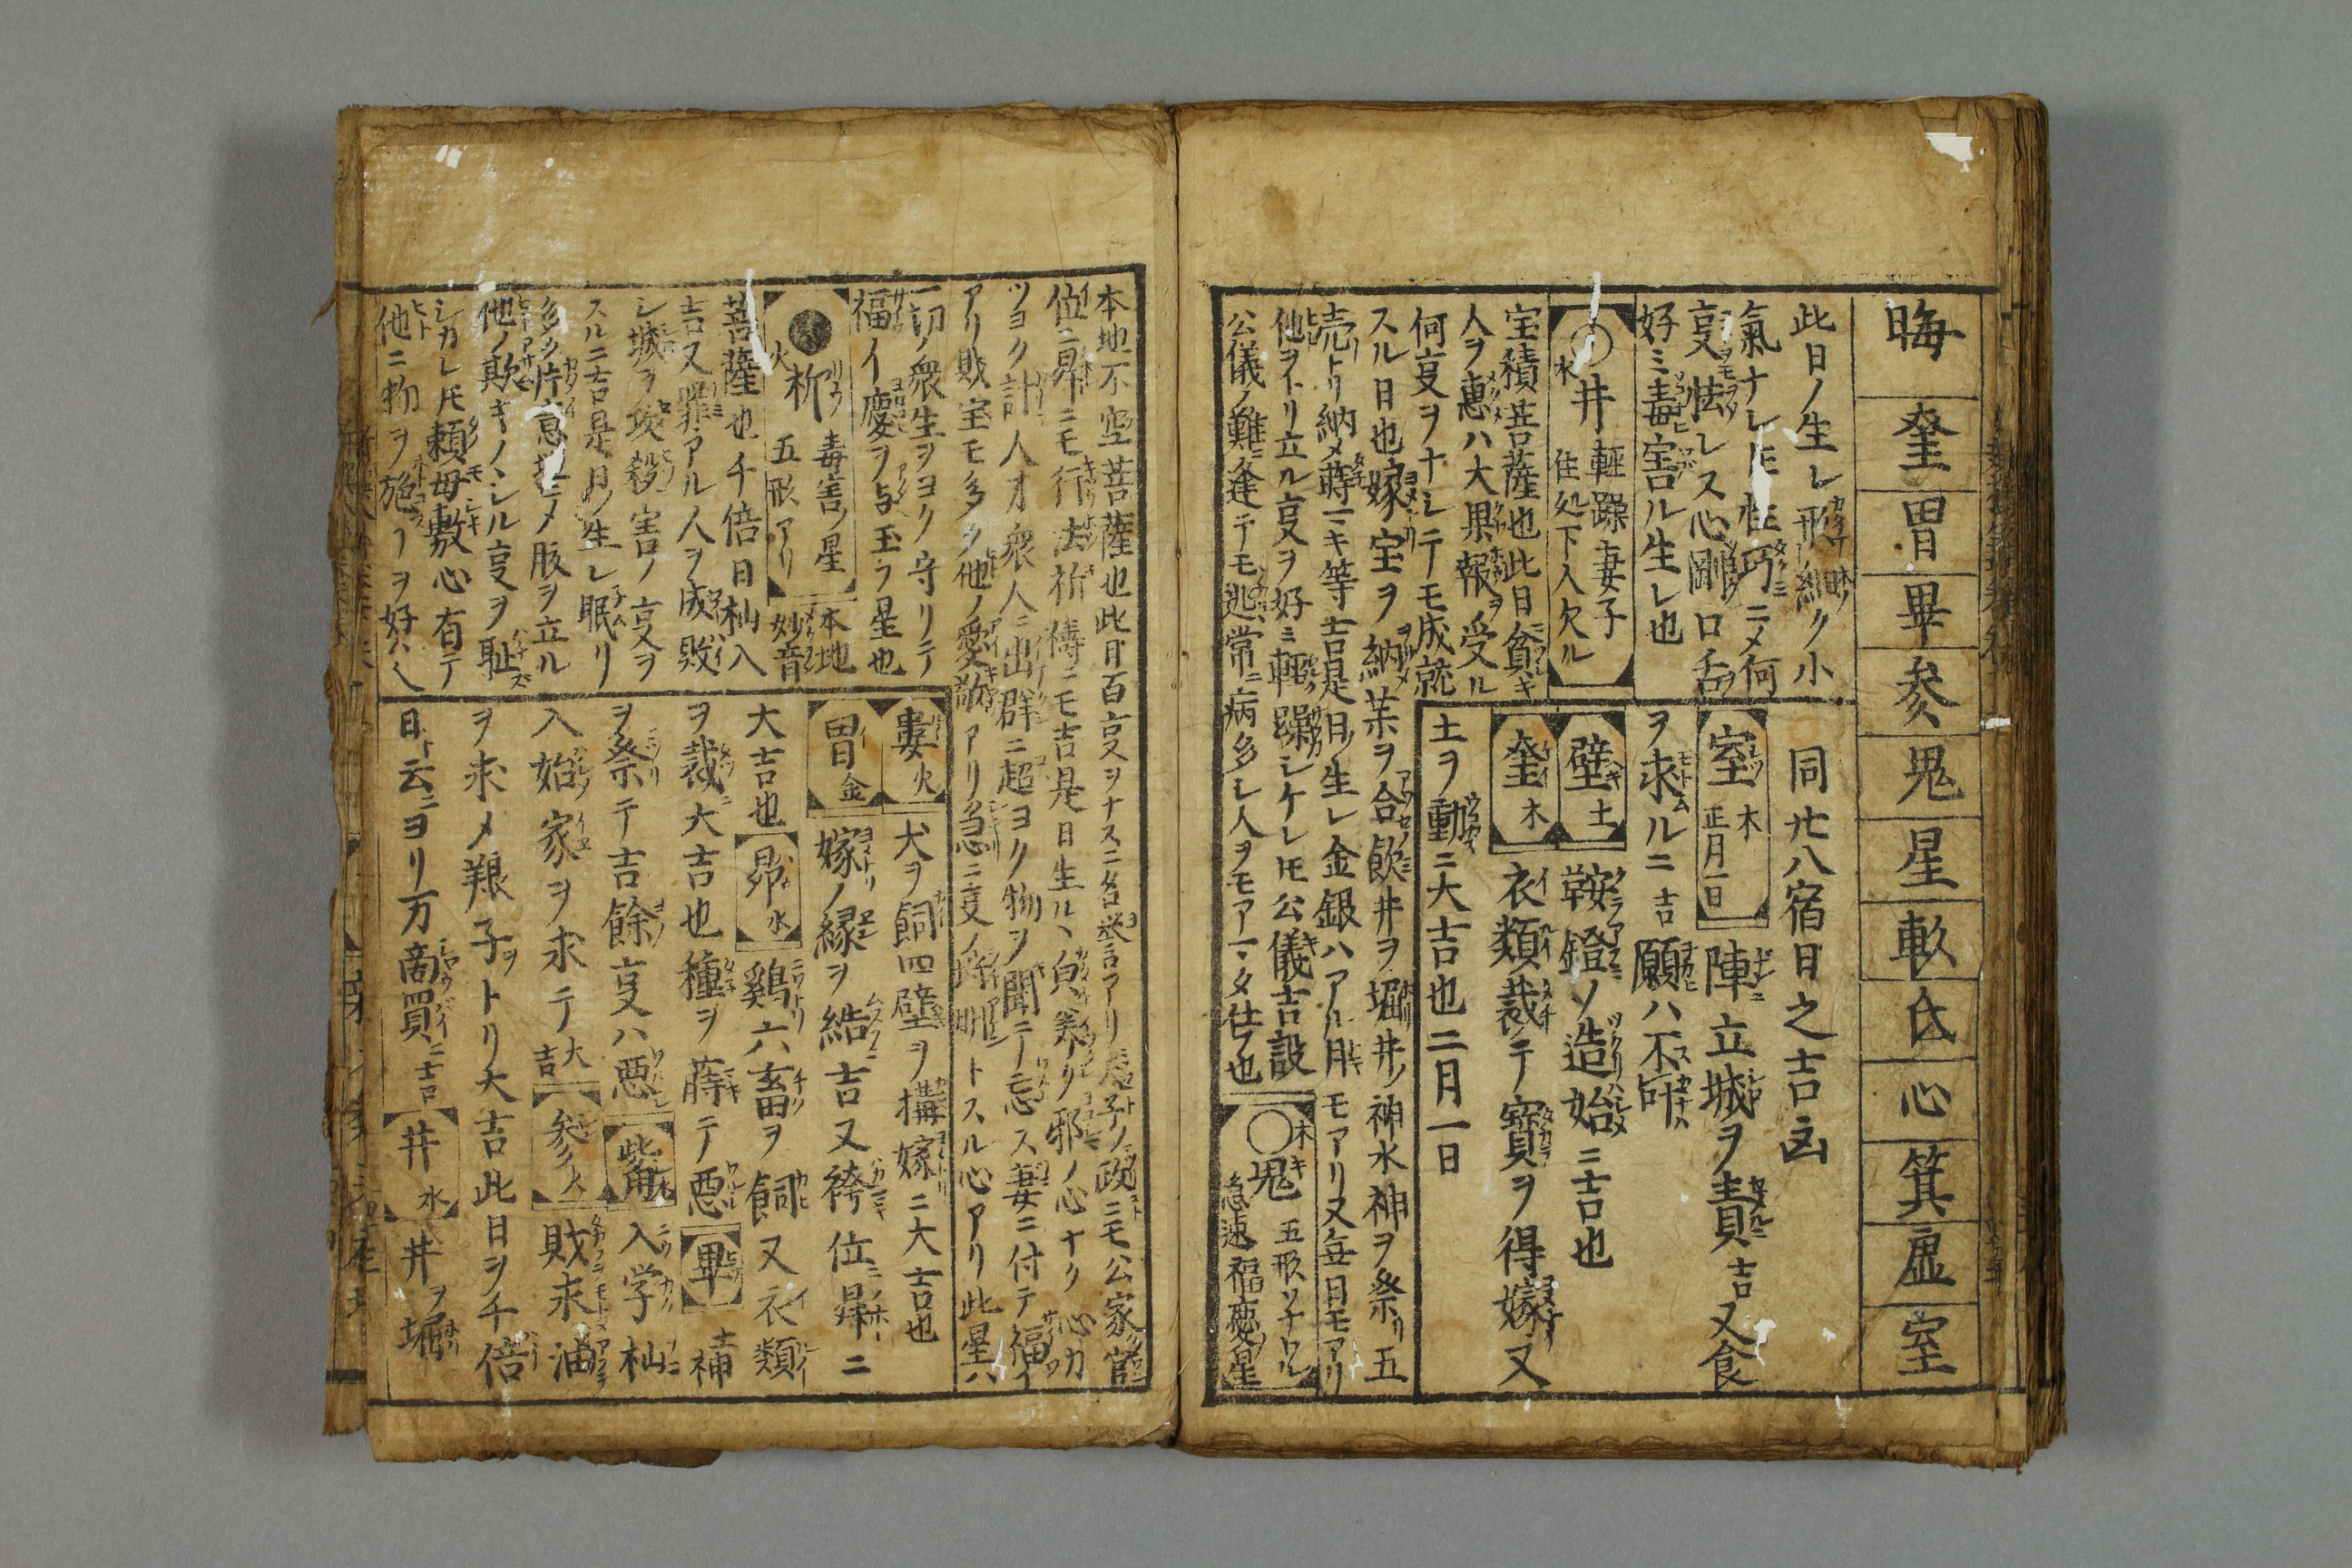 晦 奎 胃 畢 参 鬼 星 軫 氐 心 箕 虚 室
此日ノ生レ形細ク小
氣ナレ𪜈性巧ニメ何
㕝怯レス心剛口舌
好ミ毒害ル生レ也
○井 水 軽躁妻子
住処下入欠ル
宝積菩薩也此日貧キ
人ヲ惠ハ大果報ヲ受ル
何㕝ヲナシテモ成就
スル日也嫁宝ヲ納茶ヲ合飲井ヲ堀井ノ神水神ヲ祭リ五
売トリ納メ蒔キ等吉是日ノ生レ金銀ハアル月モアリ又毎日モアリ
他ヲトリ立ル㕝ヲ好ミ軽躁シケレ𪜈公儀吉設
公儀ノ難逢テモ逃常ニ病多シ人ヲモアマタ仕フ也
○鬼 木 五形ツチクル
急速福慶星
同廿八宿日之吉凶
室 木 正月一日 陣立城ヲ責吉又食
ヲ求ルニ吉願ハ不叶
壁 土 鞍鐙ノ造始ニ吉也
奎 木 衣類裁テ寳ヲ得嫁又
土ヲ動ニ大吉也二月一日
本地不空菩薩也此日百㕝ヲナスニ名誉言アリ君子ノ政ニモ公家官
位ニ昇ニモ行法祈禱ニモ吉是日生ル
ツヨク計人才衆人ニ出群ニ超ヨク物ヲ聞テ忘ス妻ニ付テ福イ
アリ財宝モ多ク他ノ愛敬アリ急ニ㕝ノ トスル心アリ此星ハ
一切ノ衆生ヲヨク守リテ
福イ慶ヲ与玉フ星也
●柳 火 毒害ノ星
五形アリ
本地
妙音
菩薩也千倍日杣入
吉又罪アルノ人ヲ成敗
シ城ヲ攻殺害ノ㕝ヲ
スルニ吉是日ノ生レ眠リ
多ク片意 メ腹ヲ立ル
他ノ欺キノヽシル㕝ヲ恥
シカレ𪜈頼母敷心有テ
他ニ物ヲ施ヿヲ好ハ
婁 火 犬ヲ飼四壁ヲ搆嫁ニ大吉也
胃 金 嫁ノ縁ヲ結吉又袴位昇ニ
大吉也 昴 水 鷄六畜ヲ飼又衣類
ヲ裁大吉也種ヲ蒔テ悪 畢 補
ヲ祭テ吉餘㕝ハ悪 觜 木 入学杣
入始家ヲ求テ大吉 参 火 財求油
ヲ求メ猴子トリ大吉此日ヲ千倍
日ト云ニヨリ万商買ニ吉 井 水 井ヲ堀